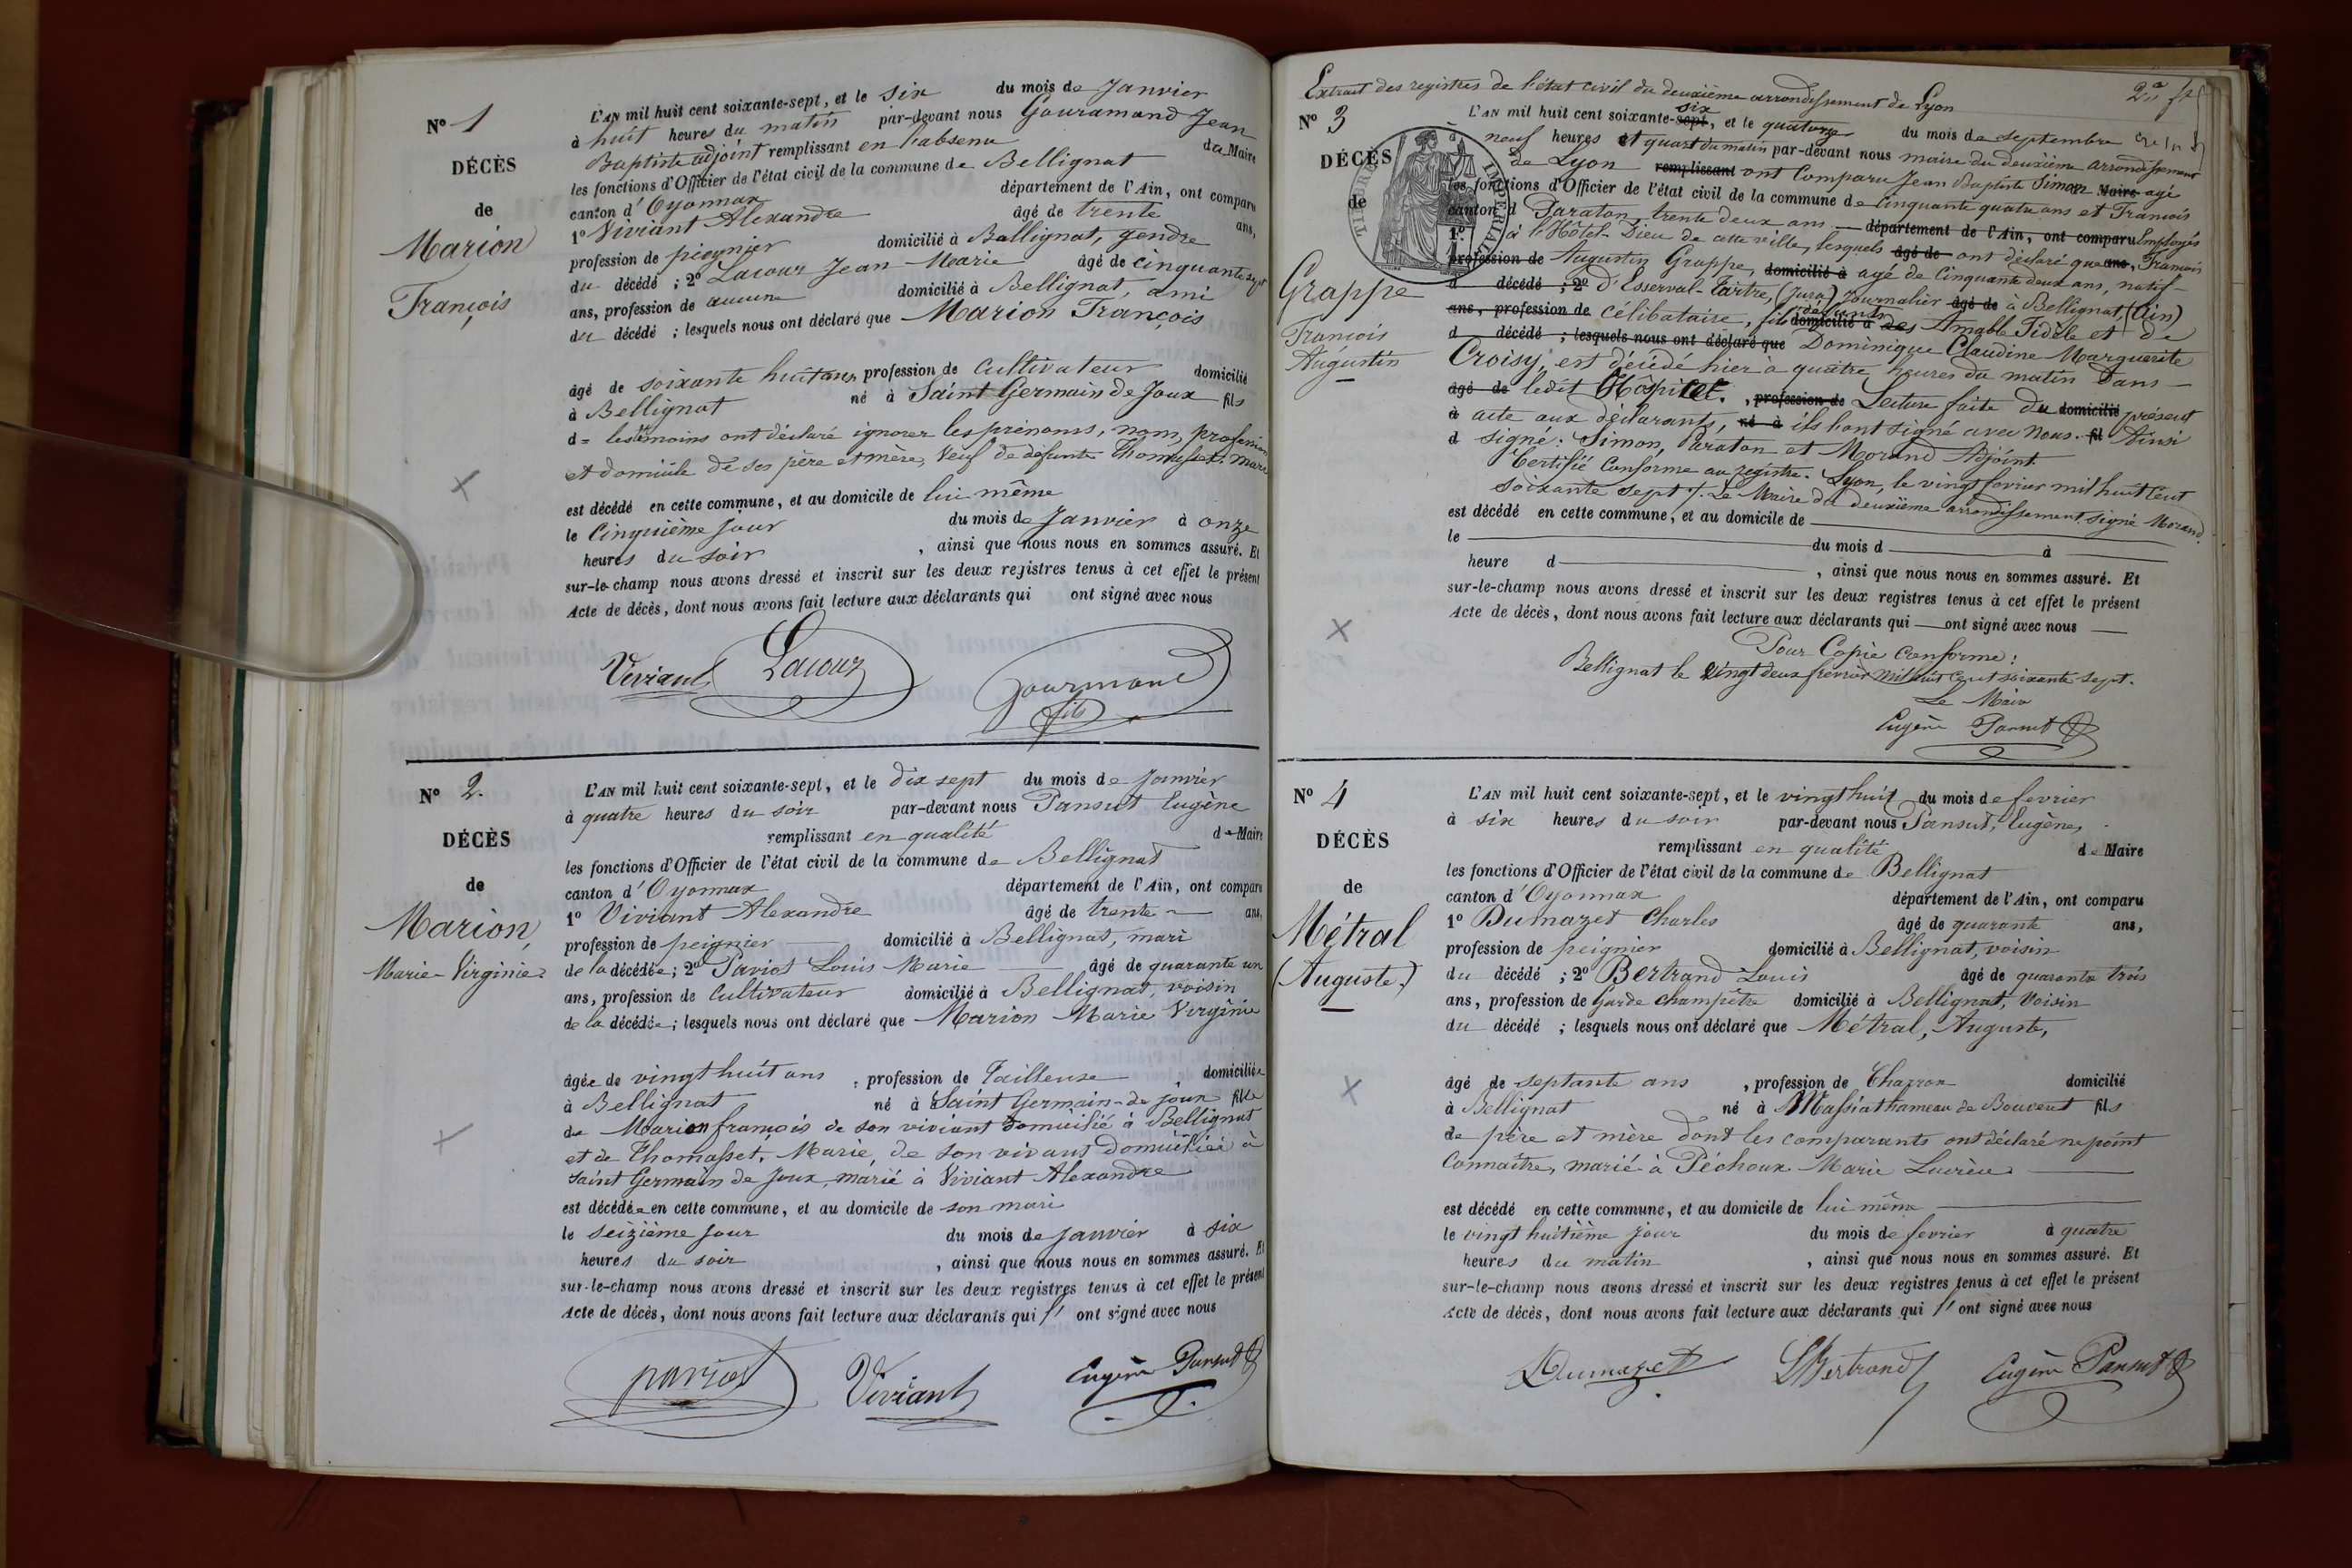 N° 1
DÉCÈS
de
Marion
François
L'AN mil huit cent soixante-sept, et le six du mois de Janvier
à huit heures du matin par-devant nous Gouramand Jean
Baptiste adjoint remplissant en l'absence du Maire
les fonctions d'Officier de l'état civil de la commune de Bellignat
canton d'Oyonnax département de l'Ain, ont comparu
1° Viviant Alexandre âgé de trente ans,
profession de peignier domicilié à Bellignat, gendre
du décédé ; 2° Lacour Jean Marie âgé de cinquante sept
ans, profession de aucune domicilié à Bellignat, ami
du décédé ; lesquels nous ont déclaré que Marion François
âgé de soixante huit ans profession de Cultivateur domicilié
à Bellignat né à Saint Germain de Joux fils
d= les témoins ont déclaré ignorer les prénoms, nom, profession
et domicile de ses père et mère, Veuf de défunte Thomasset Marie
est décédé en cette commune, et au domicile de lui même
le Cinquième jour du mois de Janvier à onze
heures du soir , ainsi que nous nous en sommes assuré. Et
sur-le-champ nous avons dressé et inscrit sur les deux registres tenus à cet effet le présent
Acte de décès, dont nous avons fait lecture aux déclarants qui ont signé avec nous
Viviant Lacour Gourmand
fils
N° 2.
DÉCÈS
de
Marion,
Marie-Virginie
L'AN mil huit cent soixante-sept, et le dix sept du mois de Janvier
à quatre heures du soir par-devant nous Pansut Eugène
remplissant en qualité de Maire
les fonctions d'Officier de l'état civil de la commune de Bellignat
canton d'Oyonnax département de l'Ain, ont comparu
1° Viviant Alexandre âgé de trente ans,
profession de peignier domicilié à Bellignat, mari
de la décédée ; 2° Paviot Louis Marie âgé de quarante un
ans, profession de Cultivateur domicilié à Bellignat, voisin
de la décédée ; lesquels nous ont déclaré que Marion Marie Virginie
âgée de vingt huit ans , profession de Tailleuse domiciliée
à Bellignat né à Saint Germain-de joux fille
de Marion françois de son vivant domicilié à Bellignat
et de Thomasset, Marie, de son vivant domiciliée à
Saint Germain de Joux, marié à Viviant Alexandre
est décédée en cette commune, et au domicile de son mari
le seizième jour du mois de janvier à six
heures du soir , ainsi que nous nous en sommes assuré. Et
sur-le-champ nous avons dressé et inscrit sur les deux registres tenus à cet effet le présent
Acte de décès, dont nous avons fait lecture aux déclarants qui l' ont signé avec nous
paviot Viviant Eugène Pansut
Extrait des registres de l'état civil du deuxième arrondissement de Lyon
N° 3
DÉCÈS
de
Grappe
François
Augustin
TIMBRE IMPERIAL
L'AN mil huit cent soixante-sept six, et le quatorze du mois de septembre
à neuf heures et quart du matin par-devant nous maire du deuxième arrondissement
de Lyon remplissant ont Comparu Jean Baptiste Simon Maire agé
les fonctions d'Officier de l'état civil de la commune de Cinquante quatre ans et François
canton d Paraton trente deux ans département de l'Ain, ont comparu Employés
1° à l'Hôtel-Dieu de cette ville, lesquels âgé de ont déclaré que ans, François
profession de Augustin Grappe, domicilié à agé de Cinquante deux ans, natif
d décédé ; 2° d'Esserval-Tartre, (Jura) Journalier âgé de à Bellignat, (Ain)
ans, profession de Célibataire, fils domicilié à des défunts Amable Fidèle et de
d décédé ; lesquels nous ont déclaré que Dominique Claudine Marguerite
Croisy, est décédé hier à quatre heures du matin dans
âgé de ledit Hospice. , profession de Lecture faite du domicilié présent
à acte aux déclarants, né à ils l'ont signé avec Nous. fil Ainsi
d signé : Simon, Paraton et Morand Adjoint.
Certifié Conforme au registre. Lyon, le vingt fevrier mil huit Cent
soixante sept. Le Maire du deuxième arrondissement signé Morand.
est décédé en cette commune, et au domicile de
le du mois d à
heure d , ainsi que nous nous en sommes assuré. Et
sur-le-champ nous avons dressé et inscrit sur les deux registres tenus à cet effet le présent
Acte de décès, dont nous avons fait lecture aux déclarants qui ont signé avec nous
Pour Copie Conforme :
Bellignat le vingt deux frevrier mil huit Cent soixante sept.
Le Maire
Eugène Pansut
N° 4
DÉCÈS
de
Métral
(Auguste)
L'AN mil huit cent soixante-sept, et le vingt huit du mois de fevrier
à six heures du soir par-devant nous Pansut, Eugène,
remplissant en qualité de Maire
les fonctions d'Officier de l'état civil de la commune de Bellignat
canton d'Oyonnax département de l'Ain, ont comparu
1° Dumazet Charles âgé de quarante ans,
profession de peignier domicilié à Bellignat, voisin
du décédé ; 2° Bertrand Louis âgé de quarante trois
ans, profession de Garde champêtre domicilié à Bellignat, Voisin
du décédé ; lesquels nous ont déclaré que Métral, Auguste,
âgé de septante ans , profession de Charron domicilié
à Bellignat né à Massiat hameau de Bouvent fils
de père et mère dont les comparants ont déclaré ne point
Connaître, marié à Péchoux Marie Lucrèce
est décédé en cette commune, et au domicile de lui même
le vingt huitième jour du mois de fevrier à quatre
heures du matin , ainsi que nous nous en sommes assuré. Et
sur-le-champ nous avons dressé et inscrit sur les deux registres tenus à cet effet le présent
Acte de décès, dont nous avons fait lecture aux déclarants qui l' ont signé avec nous
Dumazet LBertrand Eugène Pansut